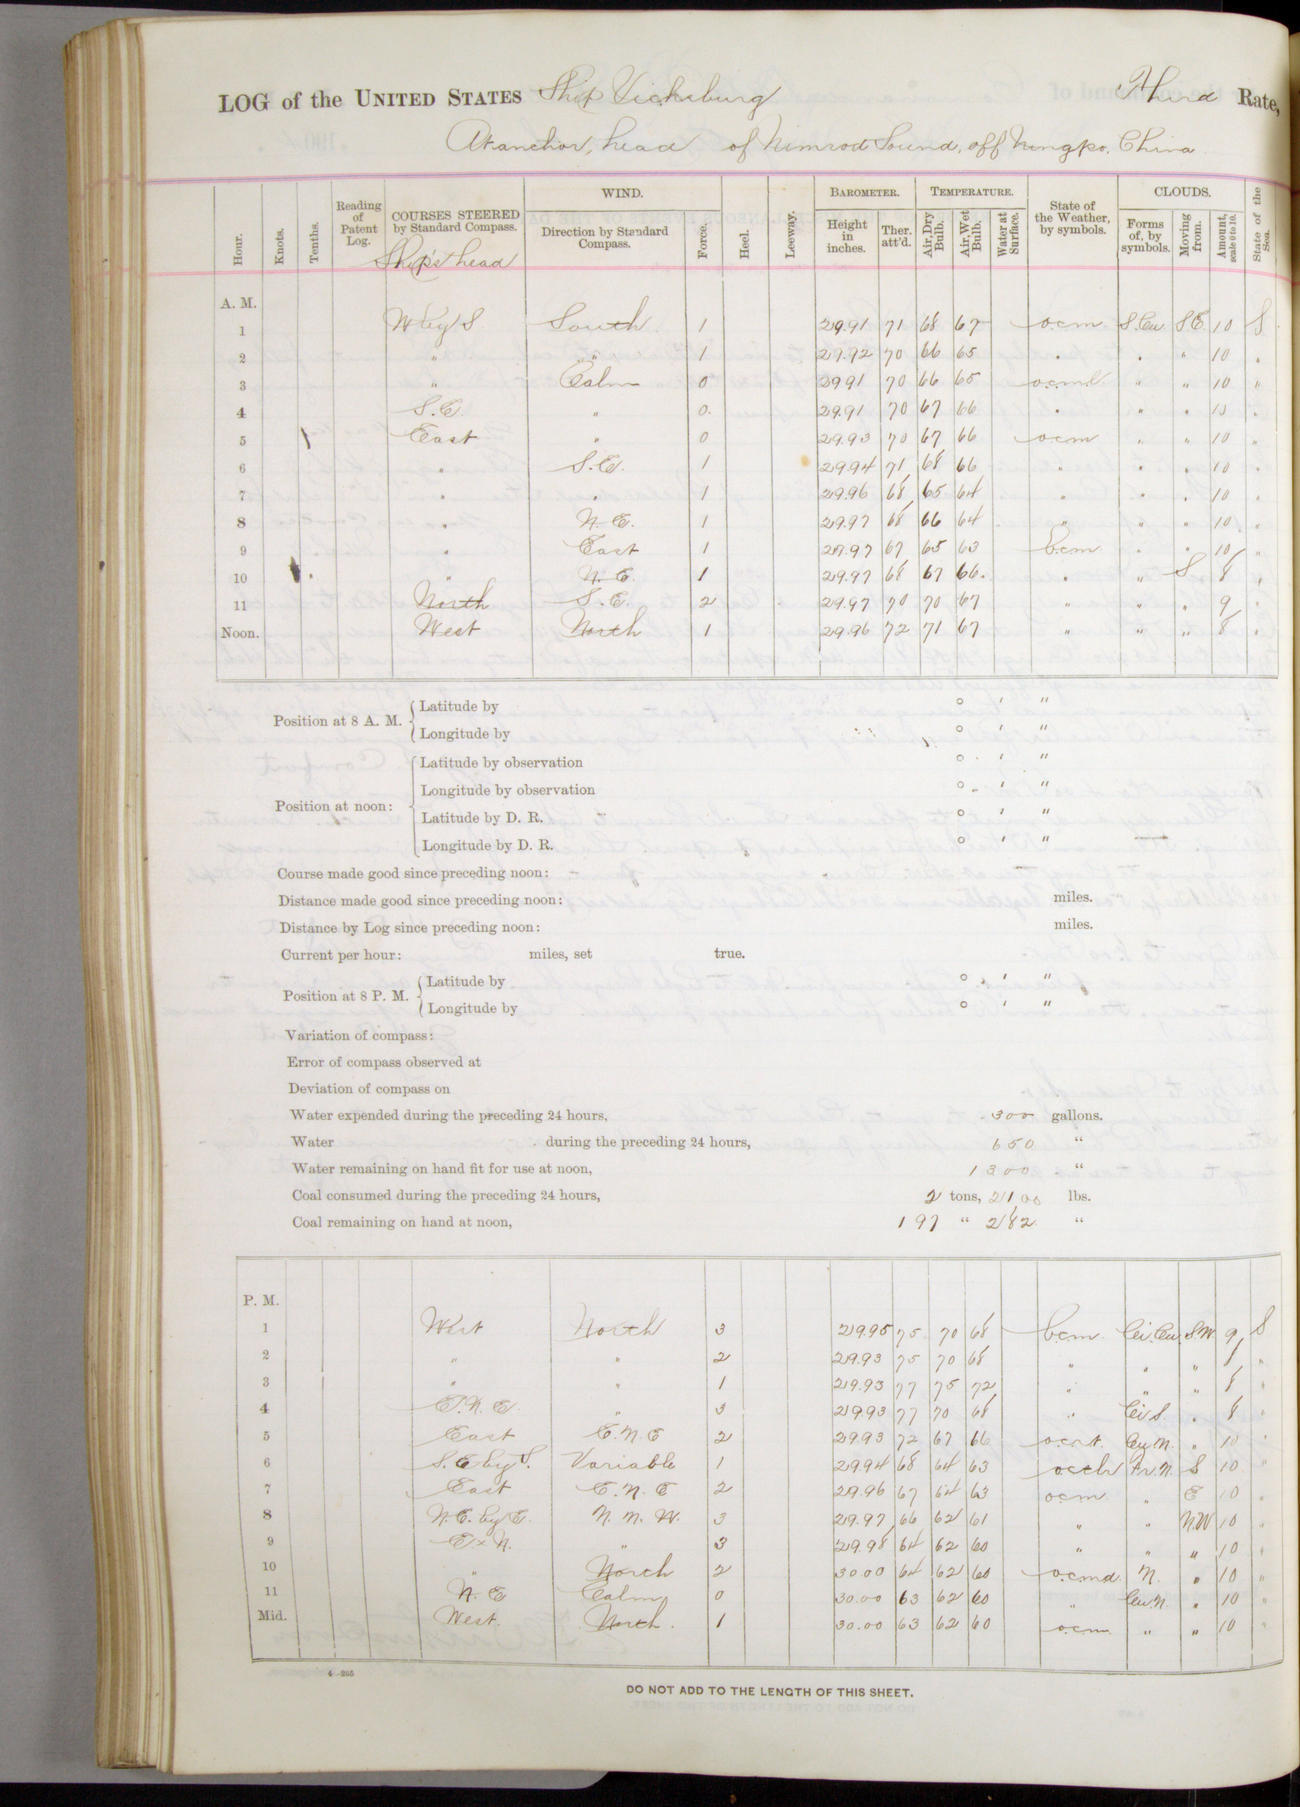 LOG of the UNITED STATES Ship Vicksburg Third Rate,
At anchor, head of Nimrod Sound, off Ningpo, China
Hour. Knots. Tenths. Reading of Patent Log. COURSES STEERED by Standard Compass. WIND. Direction by Standard Compass. Force. Heel. Leeway. BAROMETER. Height in inches. Ther. att'd. TEMPERATURE. Air, Dry Bulb. Air, Wet Bulb. Water at Surface. State of the Weather, by symbols. CLOUDS. Forms of, by symbols. Moving from. Amount, scale 0 to 10. State of the Sea.
Ship's head
A. M.
1 W by S South 1 29.91 71 68 67 o.c.m. S.Cu. S.E. 10 S
2 " " " 1 29.92 70 66 65 " " " 10 "
3 " Calm 0 29.91 70 66 65 o.c.m.l. " " 10 "
4 S.E. " 0 29.91 70 67 66 " " " 10 "
5 East " 0 29.93 70 67 66 o.c.m " " 10 "
6 " S.E. 1 29.94 71 68 66 " " " 10 "
7 " " 1 29.96 68 65 64 " " " 10 "
8 " N.E. 1 29.97 68 66 64 " " " 10 "
9 " East 1 29.97 67 65 63 b.c.m " " 10 "
10 " N.E. 1 29.97 68 67 66 " " S 8 "
11 North S.E. 2 29.97 70 70 67 " " " 9 "
Noon. West North 1 29.96 72 71 67 " " " 8 "
Position at 8 A. M. Latitude by ° ' "
Longitude by ° ' "
Position at noon: Latitude by observation ° ' "
Longitude by observation ° ' "
Latitude by D. R. ° ' "
Longitude by D. R. ° ' "
Course made good since preceding noon:
Distance made good since preceding noon: miles.
Distance by Log since preceding noon: miles.
Current per hour: miles, set true.
Position at 8 P. M. Latitude by ° ' "
Longitude by ° ' "
Variation of compass:
Error of compass observed at
Deviation of compass on
Water expended during the preceding 24 hours, 300 gallons.
Water during the preceding 24 hours, 650 "
Water remaining on hand fit for use at noon, 1300 "
Coal consumed during the preceding 24 hours, 2 tons, 2100 lbs.
Coal remaining on hand at noon, 197 " 282 "
P. M.
1 West North 3 29.95 75 70 68 b.c.m. Ci.Cu. S.W 9 S
2 " " 2 29.93 75 70 68 " " " 8 "
3 " " 1 29.93 77 75 72 " " " 8 "
4 E.N.E. " 3 29.93 77 70 68 " Ci S. " 8 "
5 East E.N.E 2 29.93 72 67 66 Cu N. " 10 "
6 S.E by S. Variable 1 29.94 68 64 63 Fr. N. S 10 "
7 East E.N.E 2 29.96 67 64 63 o.c.m. " E 10 "
8 N.E. by E. N.N.W. 3 29.97 66 62 61 " " N.W 10 "
9 E x N. " 3 29.98 64 62 60 " " " 10 "
10 " North 2 30.00 64 62 60 o.c.m.d. N. " 10 "
11 N.E Calm 0 30.00 63 62 60 " Cu.N. " 10 "
Mid. West. North. 1 30.00 63 62 60 o.c.m. " " 10 "
4—265
DO NOT ADD TO THE LENGTH OF THIS SHEET.